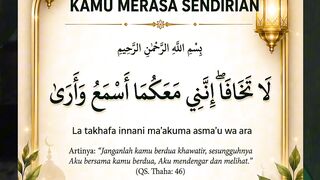 KAMU MERASA SENDIRIAN
بِسْمِ اللَّهِ الرَّحْمَٰنِ الرَّحِيمِ
لَا تَخَافَا ۖ إِنَّنِي مَعَكُمَا أَسْمَعُ وَأَرَىٰ
La takhafa innani ma'akuma asma'u wa ara
Artinya: "Janganlah kamu berdua khawatir, sesungguhnya
Aku bersama kamu berdua, Aku mendengar dan melihat."
(QS. Thaha: 46)